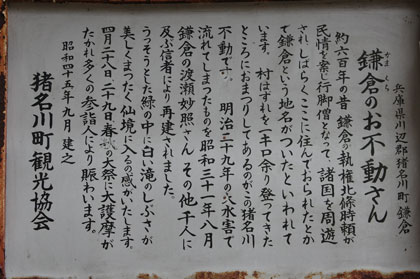 兵庫県川辺郡猪名川町鎌倉
鎌倉のお不動さん
かま くら
約六百年の昔 鎌倉の執権北條時頼が
民情を案じ行脚僧となって、諸国を周遊
され、しばらくここに住んでおられたとか
で鎌倉という地名がついたといわれて
います。村はずれを一キロ余り登ってきた
ところにおまつりしてあるのがこの猪名川
不動です。 明治二十九年の大水害で
流れてしまったものを昭和三十一年八月
鎌倉の渡瀬妙照さん その他千人に
及ぶ信者により再建されました。
うっそうとした緑の中に白い滝のしぶきが
美しくまったく仙境に入るの感がいたします。
四月二十八日、二十九日、春秋の大祭に大護摩が
たかれ多くの参詣人により賑わいます。
昭和四十五年九月 建之
猪名川町観光協会